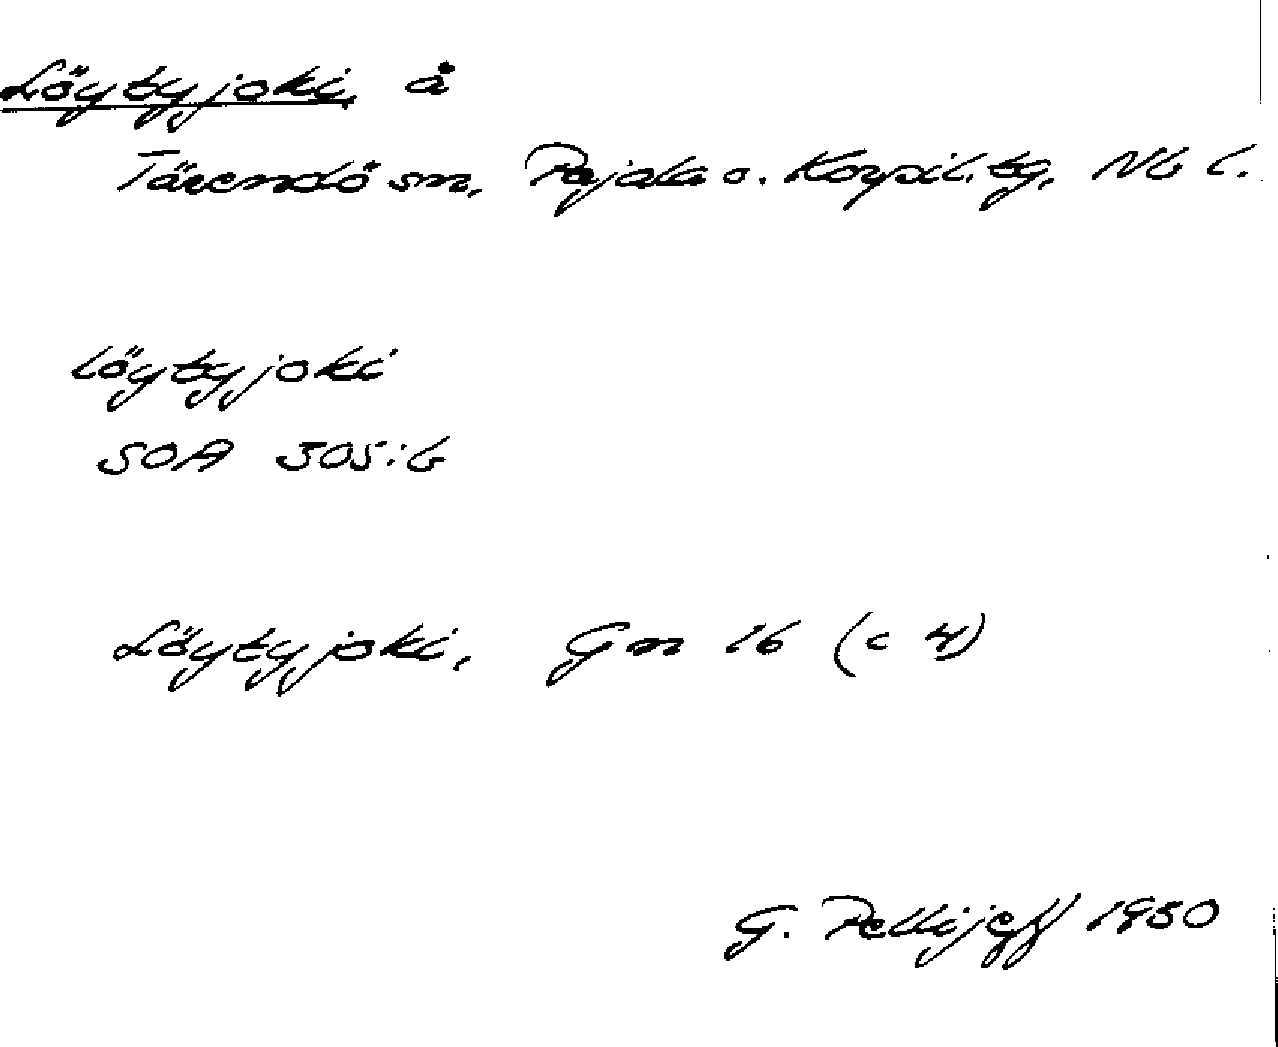 Löytyjoki, å
Tärendö sn, Pajala o. Korpil. tg, Nb l.
Löytyjoki
SOA 305:6
Löytyjoki, Gm 16 (c 4)
G. Pellijeff 1950